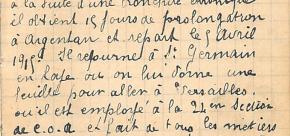 à la suite d'une bronchite chronique
il obtient 15 jours de prolongation
à Argentan et repart le 5 avril
1915 Il retourne à St Germain
en Laye où on lui donne une
feuille pour aller à Versailles.
où il est employé à la 22 em Section
de C.O.A et fait de tous les métiers